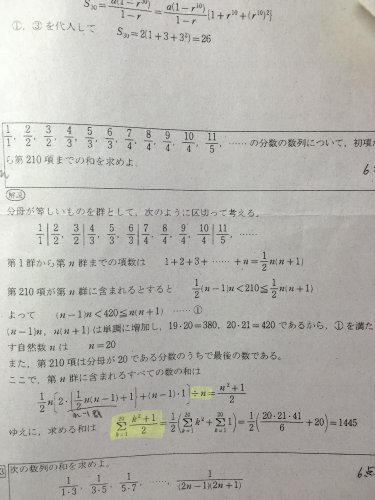 S₃₀ = a(1-r³⁰)/1-r = a(1-r¹⁰)/1-r {1+r¹⁰+(r¹⁰)²}
①, ③ を代入して S₃₀=2(1+3+3²)=26
1/1, 2/2, 3/2, 4/3, 5/3, 6/3, 7/4, 8/4, 9/4, 10/4, 11/5, …… の分数の数列について, 初項か
ら第210項までの和を求めよ.
解説
分母が等しいものを群として, 次のように区切って考える.
1/1 | 2/2, 3/2 | 4/3, 5/3, 6/3 | 7/4, 8/4, 9/4, 10/4 | 11/5, ……
第1群から第n群までの項数は 1+2+3+ …… +n=1/2 n(n+1)
第210項が第n群に含まれるとすると 1/2 (n-1)n<210≦1/2 n(n+1)
よって (n-1)n<420≦n(n+1) …… ①
(n-1)n, n(n+1) は単調に増加し, 19·20=380, 20·21=420 であるから, ① を満た
す自然数nは n=20
また, 第210項は分母が20である分数のうちで最後の数である.
ここで, 第n群に含まれるすべての数の和は
1/2 n[2·{1/2 n(n-1)+1}+(n-1)·1]÷n=n²+1/2
ゆえに, 求める和は Σ[k=1→20] k²+1/2 = 1/2(Σ[k=1→20] k²+Σ[k=1→20] 1) = 1/2(20·21·41/6+20)=1445
次の数列の和を求めよ.
1/1·3, 1/3·5, 1/5·7, ……, 1/(2n-1)(2n+1)